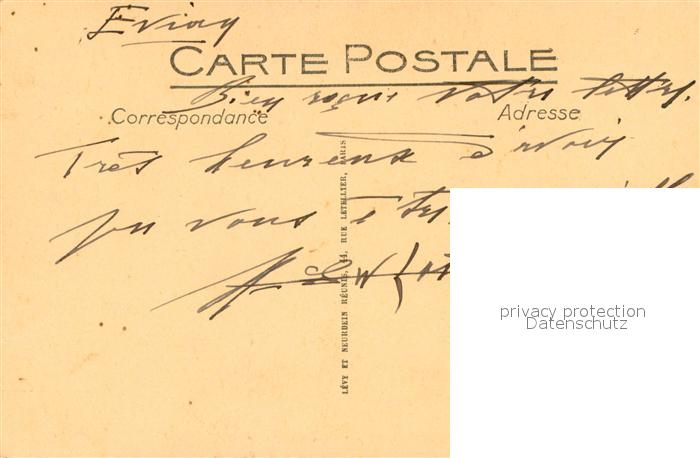 Evian
CARTE POSTALE
Bien reçue votre lettre.
Correspondance
Adresse
Très heureux d'avoir
pu vous
LÉVY ET NEURDEIN RÉUNIS, 44, RUE LETELLIER, PARIS
privacy protection
Datenschutz